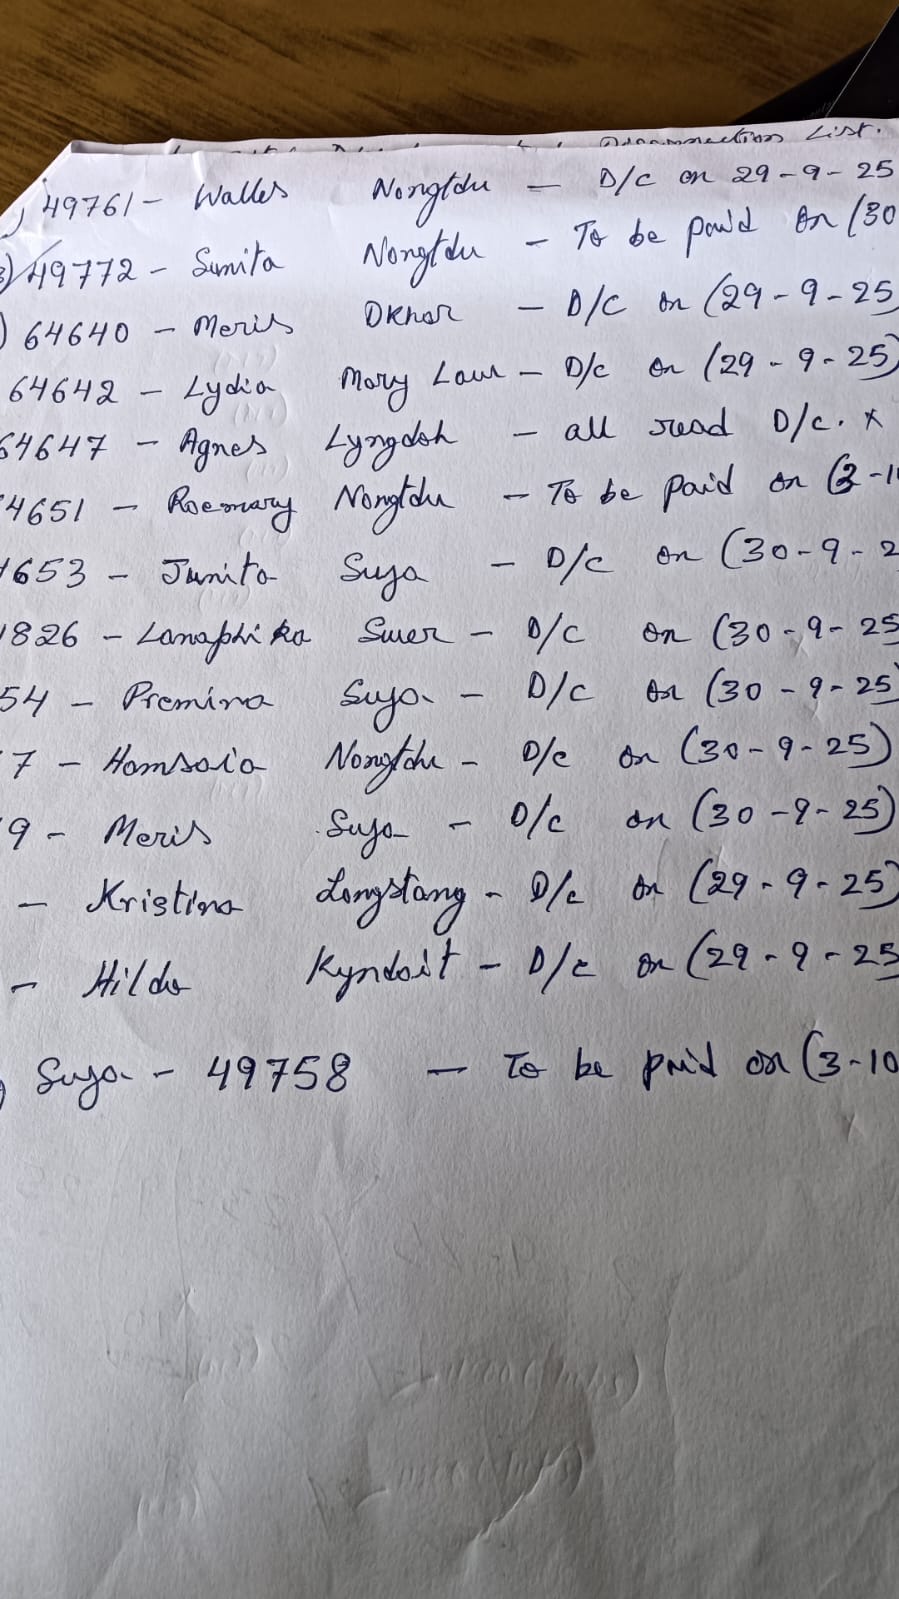 Disconnection List.
49761 - Walles Nongtdu - D/c on 29-9-25
49772 - Sunita Nongtdu - To be paid on (30
64640 - Meris Dkhar - D/c on (29-9-25
64642 - Lydia Mary Law - D/c on (29-9-25)
64647 - Agnes Lyngdoh - all read D/c. *
4651 - Rosemary Nongtdu - To be paid on (3-1
1653 - Junita Suja - D/c on (30-9-2
1826 - Lanaphi ka Suer - D/c on (30-9-25
54 - Premina Suja - D/c on (30-9-25
7 - Hamsaia Nongtdu - D/c on (30-9-25)
9 - Meris Suja - D/c on (30-9-25)
- Kristina Longstang - D/c on (29-9-25)
- Hilda Kyndait - D/c on (29-9-25
Suja - 49758 - To be paid on (3-10